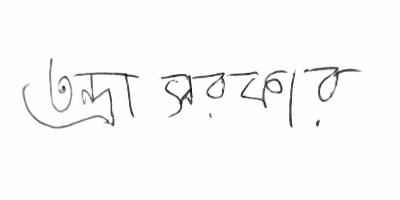 তন্দ্রা সরকার